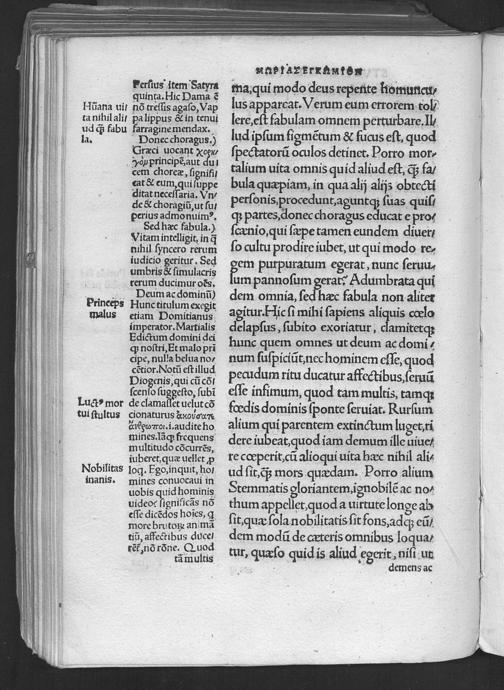 ΜΩΡΙΑΣ ΕΓΚΩΜΙΟΝ
Persius item Satyra
quinta. Hic Dama ē
nō tressis agaso, Vap
pa lippus & in tenui
farragine mendax.
Donec choragus.)
Græci uocant χορη⸗
γὸμ principē, aut du
cem choreæ, signifi
cat & eum, qui suppe
ditat necessaria. Vn⸗
de & choragiū, ut su/
perius admonuim⁹.
Sed hæc fabula.)
Vitam intelligit, in q̄
nihil syncero rerum
iudicio geritur. Sed
umbris & simulacris
rerum ducimur oēs.
Deum ac dominū)
Hunc titulum exegit
etiam Domitianus
imperator. Martialis
Edictum domini dei
q̨ nostri, Et malo pri
cipe, nulla belua no⸗
cētior. Notū est illud
Diogenis, qui cū cō⸗
scenso suggesto, subī
de clamasset uelut cō
cionaturus ἀκούσατε
ἄνθρωποι. i. audite ho
mines. Iāq̨ frequens
multitudo cōcurrēs,
iuberet, quæ uellet, p
loq. Ego, inquit, ho⸗
mines conuocaui in
uobis quid hominis
uideo: significās nō
esse dicēdos hoies, q
more brutorꝝ animā
tiū, affectibus duce
rēt, nō rōne. Quod
tā multis
Hūana ui⸗
ta nihil ali/
ud q̄ fabu
la.
Princeps
malus
Luct⁹ mor
tui stultus
Nobilitas
inanis.
ma, qui modo deus repente homuncu⸗
lus appareat. Verum eum errorem tol⸗
lere, est fabulam omnem perturbare. Il⸗
lud ipsum figmētum & fucus est, quod
spectatorū oculos detinet. Porro mor⸗
talium uita omnis quid aliud est, q̄ fa⸗
bula quæpiam, in qua alij alijs obtecti
personis, procedunt, aguntq̨ suas quis⸗
q̨ partes, donec choragus educat e pro⸗
scænio, qui sæpe tamen eundem diuer⸗
so cultu prodire iubet, ut qui modo re⸗
gem purpuratum egerat, nunc seruu⸗
lum pannosum gerat. Adumbrata qui
dem omnia, sed hæc fabula non aliter
agitur. Hic si mihi sapiens aliquis cœlo
delapsus, subito exoriatur, clamitetq̨
hunc quem omnes ut deum ac domi⸗
num suspiciūt, nec hominem esse, quod
pecudum ritu ducatur affectibus, seruū
esse infimum, quod tam multis, tamq̨
fœdis dominis sponte seruiat. Rursum
alium qui parentem extinctum luget, ri
dere iubeat, quod iam demum ille uiue⸗
re cœperit, cū alioqui uita hæc nihil ali⸗
ud sit, q̄ mors quædam. Porro alium
Stemmatis gloriantem, ignobilē ac no⸗
thum appellet, quod a uirtute longe ab
sit, quæ sola nobilitatis sit fons, adq̨ eū⸗
dem modū de cæteris omnibus loqua⸗
tur, quæso quid is aliud egerit, nisi ut
demens ac